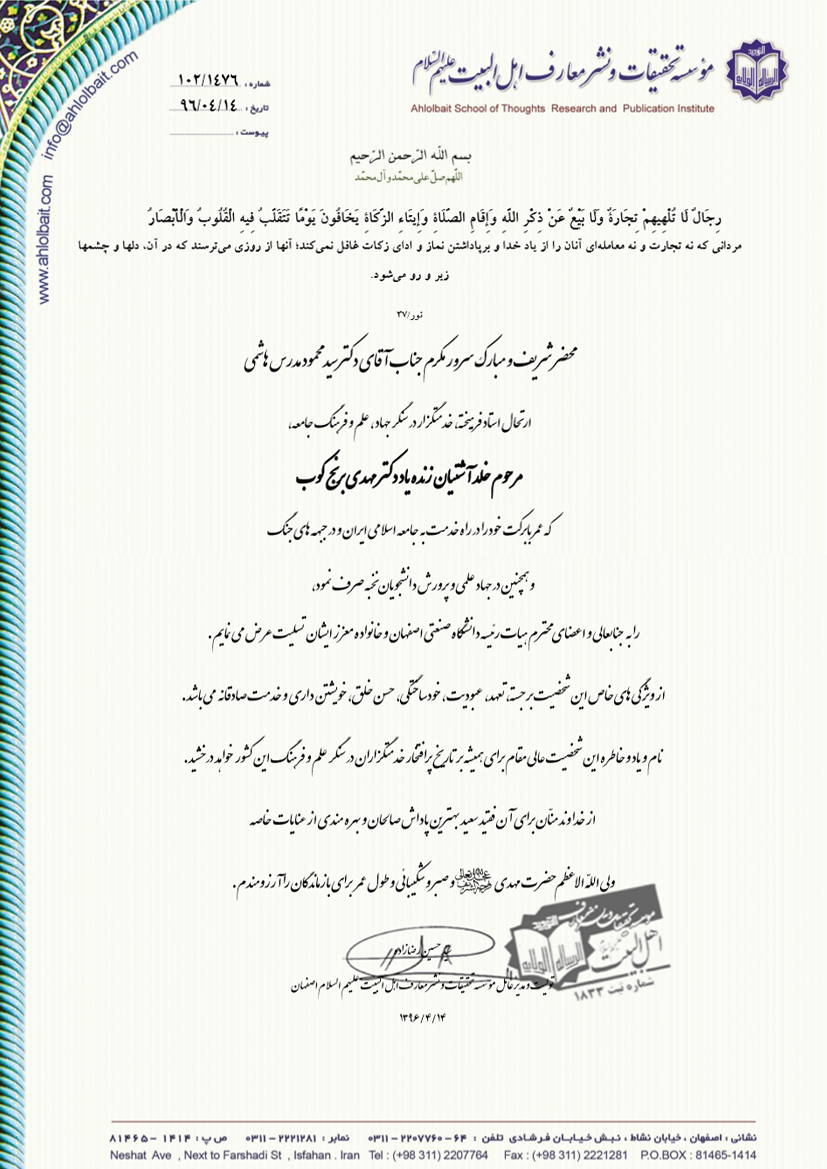 مؤسسه تحقیقات و نشر معارف اهل البیت علیهم السلام
Ahlolbait School of Thoughts Research and Publication Institute
شماره : ۱۰۲/۱٤۷٦
تاریخ : ۹٦/۰٤/۱٤
پیوست :
info@ahlolbait.com
www.ahlolbait.com
بسم اللّه الرّحمن الرّحیم
اللّهم صلّ علی محمّد و آل محمّد
رِجَالٌ لَا تُلْهِيهِمْ تِجَارَةٌ وَلَا بَيْعٌ عَنْ ذِكْرِ اللَّهِ وَإِقَامِ الصَّلَاةِ وَإِيتَاءِ الزَّكَاةِ يَخَافُونَ يَوْمًا تَتَقَلَّبُ فِيهِ الْقُلُوبُ وَالْأَبْصَارُ
مردانی که نه تجارت و نه معامله‌ای آنان را از یاد خدا و برپاداشتن نماز و ادای زکات غافل نمی‌کند؛ آنها از روزی می‌ترسند که در آن، دلها و چشمها
زیر و رو می‌شود.
نور/۳۷
محضر شریف و مبارک سرور مکرم جناب آقای دکتر سید محمود مدرس هاشمی
ارتحال استاد فرهیخته، خدمتگزار در سنگر جهاد، علم و فرهنگ جامعه،
مرحوم خلد آشتیان زنده یاد دکتر مهدی برنج کوب
که عمر بابرکت خود را در راه خدمت به جامعه اسلامی ایران و در جبهه های جنگ
و همچنین در جهاد علمی و پرورش دانشجویان نخبه صرف نمود،
را به جنابعالی و اعضای محترم هیات رئیسه دانشگاه صنعتی اصفهان و خانواده معزز ایشان تسلیت عرض می نمایم .
از ویژگی های خاص این شخصیت برجسته، تعهد، عبودیت، خودساختگی، حسن خلق، خویشتن داری و خدمت صادقانه می باشد.
نام و یاد و خاطره این شخصیت عالی مقام برای همیشه بر تاریخ پرافتخار خدمتگزاران در سنگر علم و فرهنگ این کشور خواهد درخشید.
از خداوند منّان برای آن فقید سعید بهترین پاداش صالحان و بهره مندی از عنایات خاصه
ولی اللّه الاعظم حضرت مهدی و صبر و شکیبائی و طول عمر برای بازماندگان را آرزومندم.
حسین رضازاده
تولیت و مدیر عامل مؤسسه تحقیقات و نشر معارف اهل البیت علیهم السلام اصفهان
۱۳۹۶/۴/۱۴
اهل البیت
شماره ثبت ۱۸۳۳
نشانی : اصفهان ، خیابان نشاط ، نبش خیابان فرشادی تلفن : ۶۴-۲۲۰۷۷۶۰-۰۳۱۱ نمابر : ۲۲۲۱۲۸۱-۰۳۱۱ ص پ : ۱۴۱۴-۸۱۴۶۵
Neshat Ave , Next to Farshadi St , Isfahan . Iran Tel : (+98 311) 2207764 Fax : (+98 311) 2221281 P.O.BOX : 81465-1414